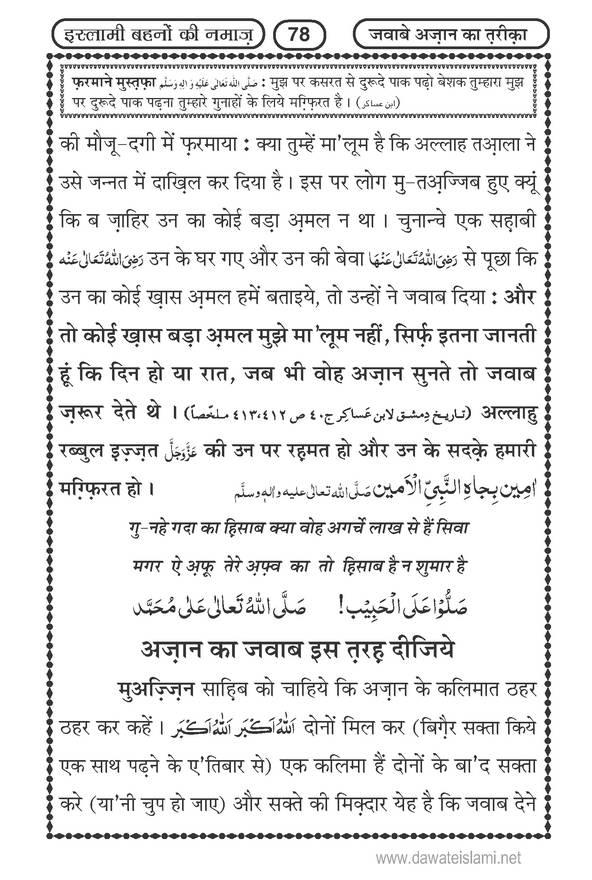 इस्लामी बहनों की नमाज़
78
जवाबे अज़ान का त़रीक़ा
फ़रमाने मुस्त़फ़ा صَلَّى اللهُ تَعَالٰى عَلَيْهِ وَاٰلِهٖ وَسَلَّم : मुझ पर कसरत से दुरूदे पाक पढ़ो बेशक तुम्हारा मुझ
पर दुरूदे पाक पढ़ना तुम्हारे गुनाहों के लिये मग़्फ़िरत है । (ابن عساکر)
की मौजू-दगी में फ़रमाया : क्या तुम्हें मा'लूम है कि अल्लाह तआ़ला ने
उसे जन्नत में दाख़िल कर दिया है । इस पर लोग मु-तअ़ज्जिब हुए क्यूं
कि ब ज़ाहिर उन का कोई बड़ा अ़मल न था । चुनान्चे एक सह़ाबी
رَضِىَ اللهُ تَعَالٰى عَنْهُ उन के घर गए और उन की बेवा رَضِىَ اللهُ تَعَالٰى عَنْهَا से पूछा कि
उन का कोई ख़ास अ़मल हमें बताइये, तो उन्हों ने जवाब दिया : और
तो कोई ख़ास बड़ा अ़मल मुझे मा'लूम नहीं, सिर्फ़ इतना जानती
हूं कि दिन हो या रात, जब भी वोह अज़ान सुनते तो जवाब
ज़रूर देते थे । (تاریخ دِمشق لابن عَساکِر ج٤٠ ص ٤١٢،٤١٣ ملخّصاً) अल्लाहु
रब्बुल इ़ज़्ज़त عَزَّوَجَلَّ की उन पर रह़मत हो और उन के सदक़े हमारी
मग़्फ़िरत हो । اٰمِين بِجَاهِ النَّبِيِّ الْاَمين صَلَّى الله تعالى عليه واٰلهٖ وسلَّم
गु-नहे गदा का ह़िसाब क्या वोह अगर्चे लाख से हैं सिवा
मगर ऐ अ़फ़ू तेरे अ़फ़्व का तो ह़िसाब है न शुमार है
صَلُّوْا عَلَى الْحَبِيْب! صَلَّى اللهُ تَعَالٰى عَلٰى مُحَمَّد
अज़ान का जवाब इस त़रह़ दीजिये
मुअज़्ज़िन साह़िब को चाहिये कि अज़ान के कलिमात ठहर
ठहर कर कहें । اَللهُ اَكْبَر اَللهُ اَكْبَر दोनों मिल कर (बिग़ैर सक्ता किये
एक साथ पढ़ने के ए'तिबार से) एक कलिमा हैं दोनों के बा'द सक्ता
करे (या'नी चुप हो जाए) और सक्ते की मिक़्दार येह है कि जवाब देने
www.dawateislami.net